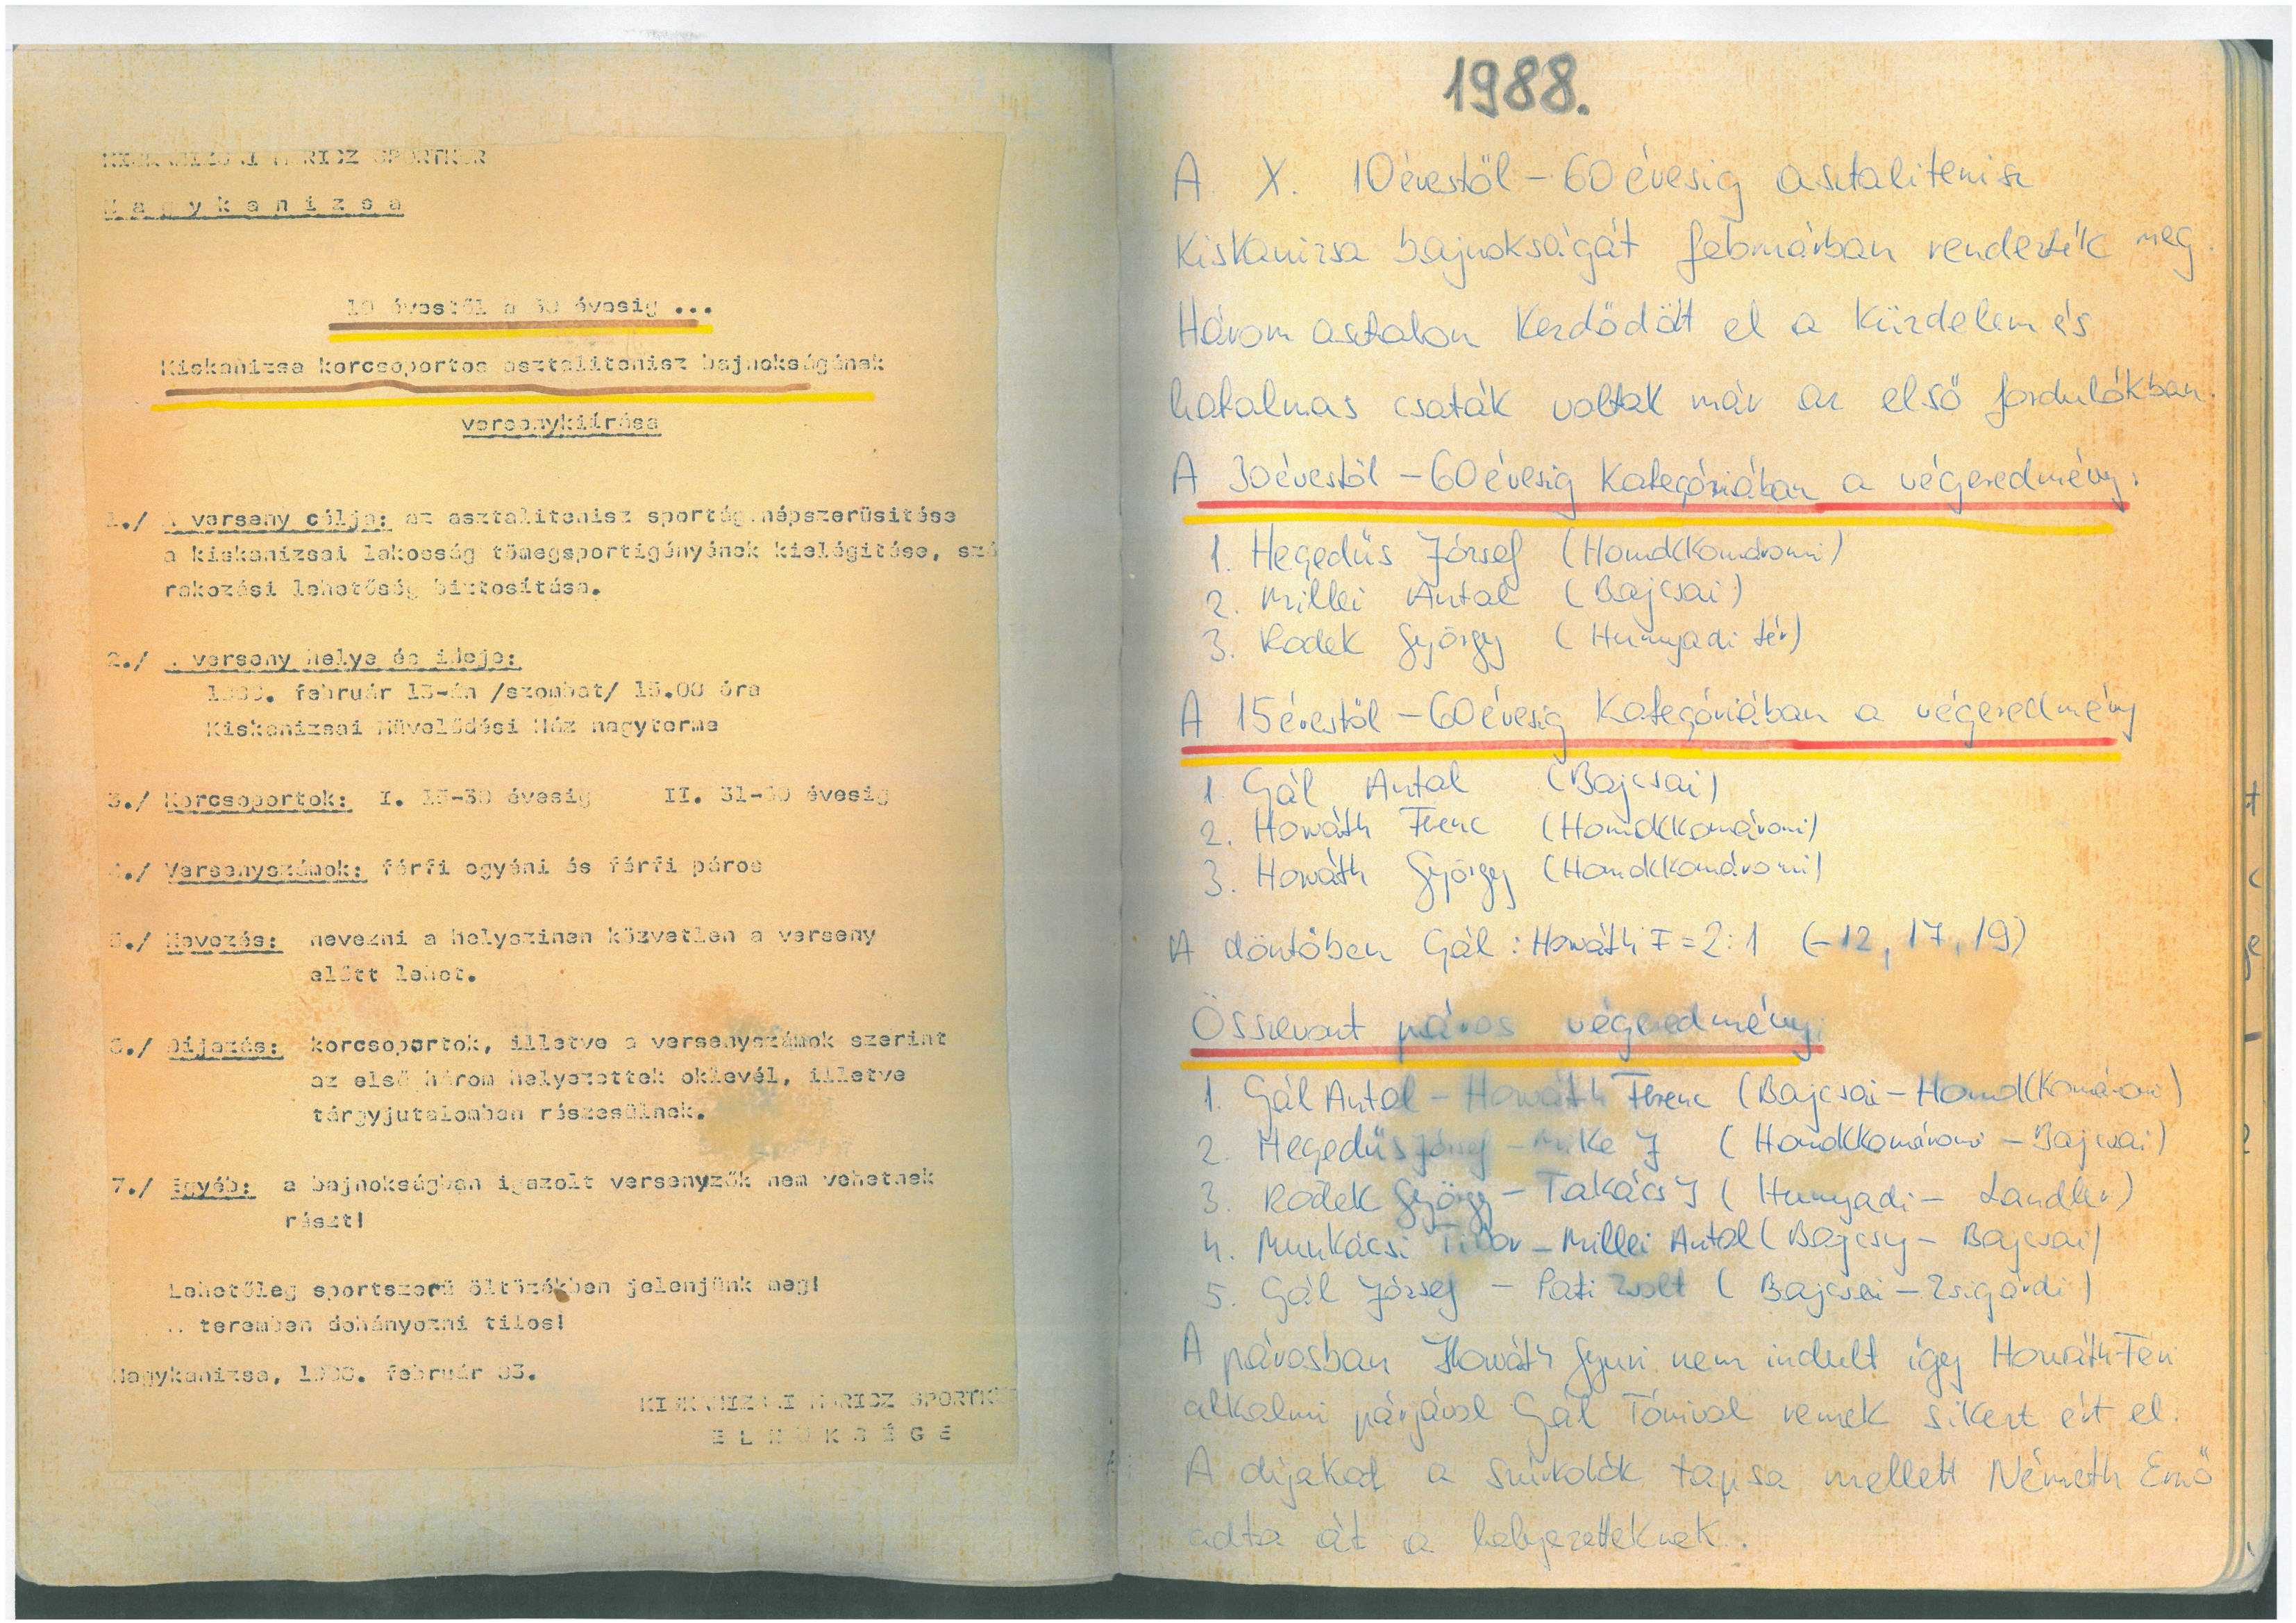 KISKANIZSAI MÓRICZ SPORTKÖR
N a g y k a n i z s a
10 évestől a 60 évesig ...
Kiskanizsa korcsoportos asztalitenisz bajnokságának
versenykiírása
1./ A verseny célja: az asztalitenisz sportág népszerüsitése
a kiskanizsai lakosság tömegsportigényének kielégitése, szó
rakozási lehetőség biztosítása.
2./ A verseny helye és ideje:
1988. február 13-án /szombat/ 15.00 óra
Kiskanizsai Művelődési Ház nagyterme
3./ Korcsoportok: I. 15-30 évesig II. 31-60 évesig
4./ Versenyszámok: férfi egyéni és férfi páros
5./ Nevezés: nevezni a helyszinen közvetlen a verseny
előtt lehet.
6./ Díjazás: korcsoportok, illetve a versenyszámok szerint
az első három helyezettek oklevél, illetve
tárgyjutalomban részesülnek.
7./ Egyéb: a bajnokságban igazolt versenyzők nem vehetnek
részt!
Lehetőleg sportszerű öltözékben jelenjünk meg!
A teremben dohányozni tilos!
Nagykanizsa, 1988. február 03.
KISKANIZSAI MÓRICZ SPORTKÖR
E L N Ö K S É G E
1988.
A X. 10 évestől - 60 évesig asztalitenisz
Kiskanizsa bajnokságát februárban rendezték meg.
Három asztalon kezdődött el a küzdelem és
hatalmas csaták voltak már az első fordulókban.
A 30 évestől - 60 évesig kategóriában a végeredmény:
1. Hegedüs József (Homokkomáromi)
2. Millei Antal (Bajcsai)
3. Rodek György (Hunyadi tér)
A 15 évestől - 60 évesig kategóriában a végeredmény
1. Gál Antal (Bajcsai)
2. Horváth Ferenc (Homokkomáromi)
3. Horváth György (Homokkomáromi)
A döntőben Gál : Horváth F = 2:1 (-12, 17, 19)
Összevont páros végeredmény:
1. Gál Antal - Horváth Ferenc (Bajcsai - Homokkomáromi)
2. Hegedüs József - Mike J (Homokkomáromi - Bajcsai)
3. Rodek György - Takács J (Hunyadi - Landler)
4. Munkácsi Tibor - Millei Antal (Bajcsy - Bajcsai)
5. Gál József - Pati Zsolt (Bajcsai - Zsigárdi)
A párosban Horváth Gyuri nem indult így Horváth Feri
alkalmi párjával Gál Tónival remek sikert ért el.
A díjakat a szurkolók tapsa mellett Németh Ernő
adta át a helyezetteknek.